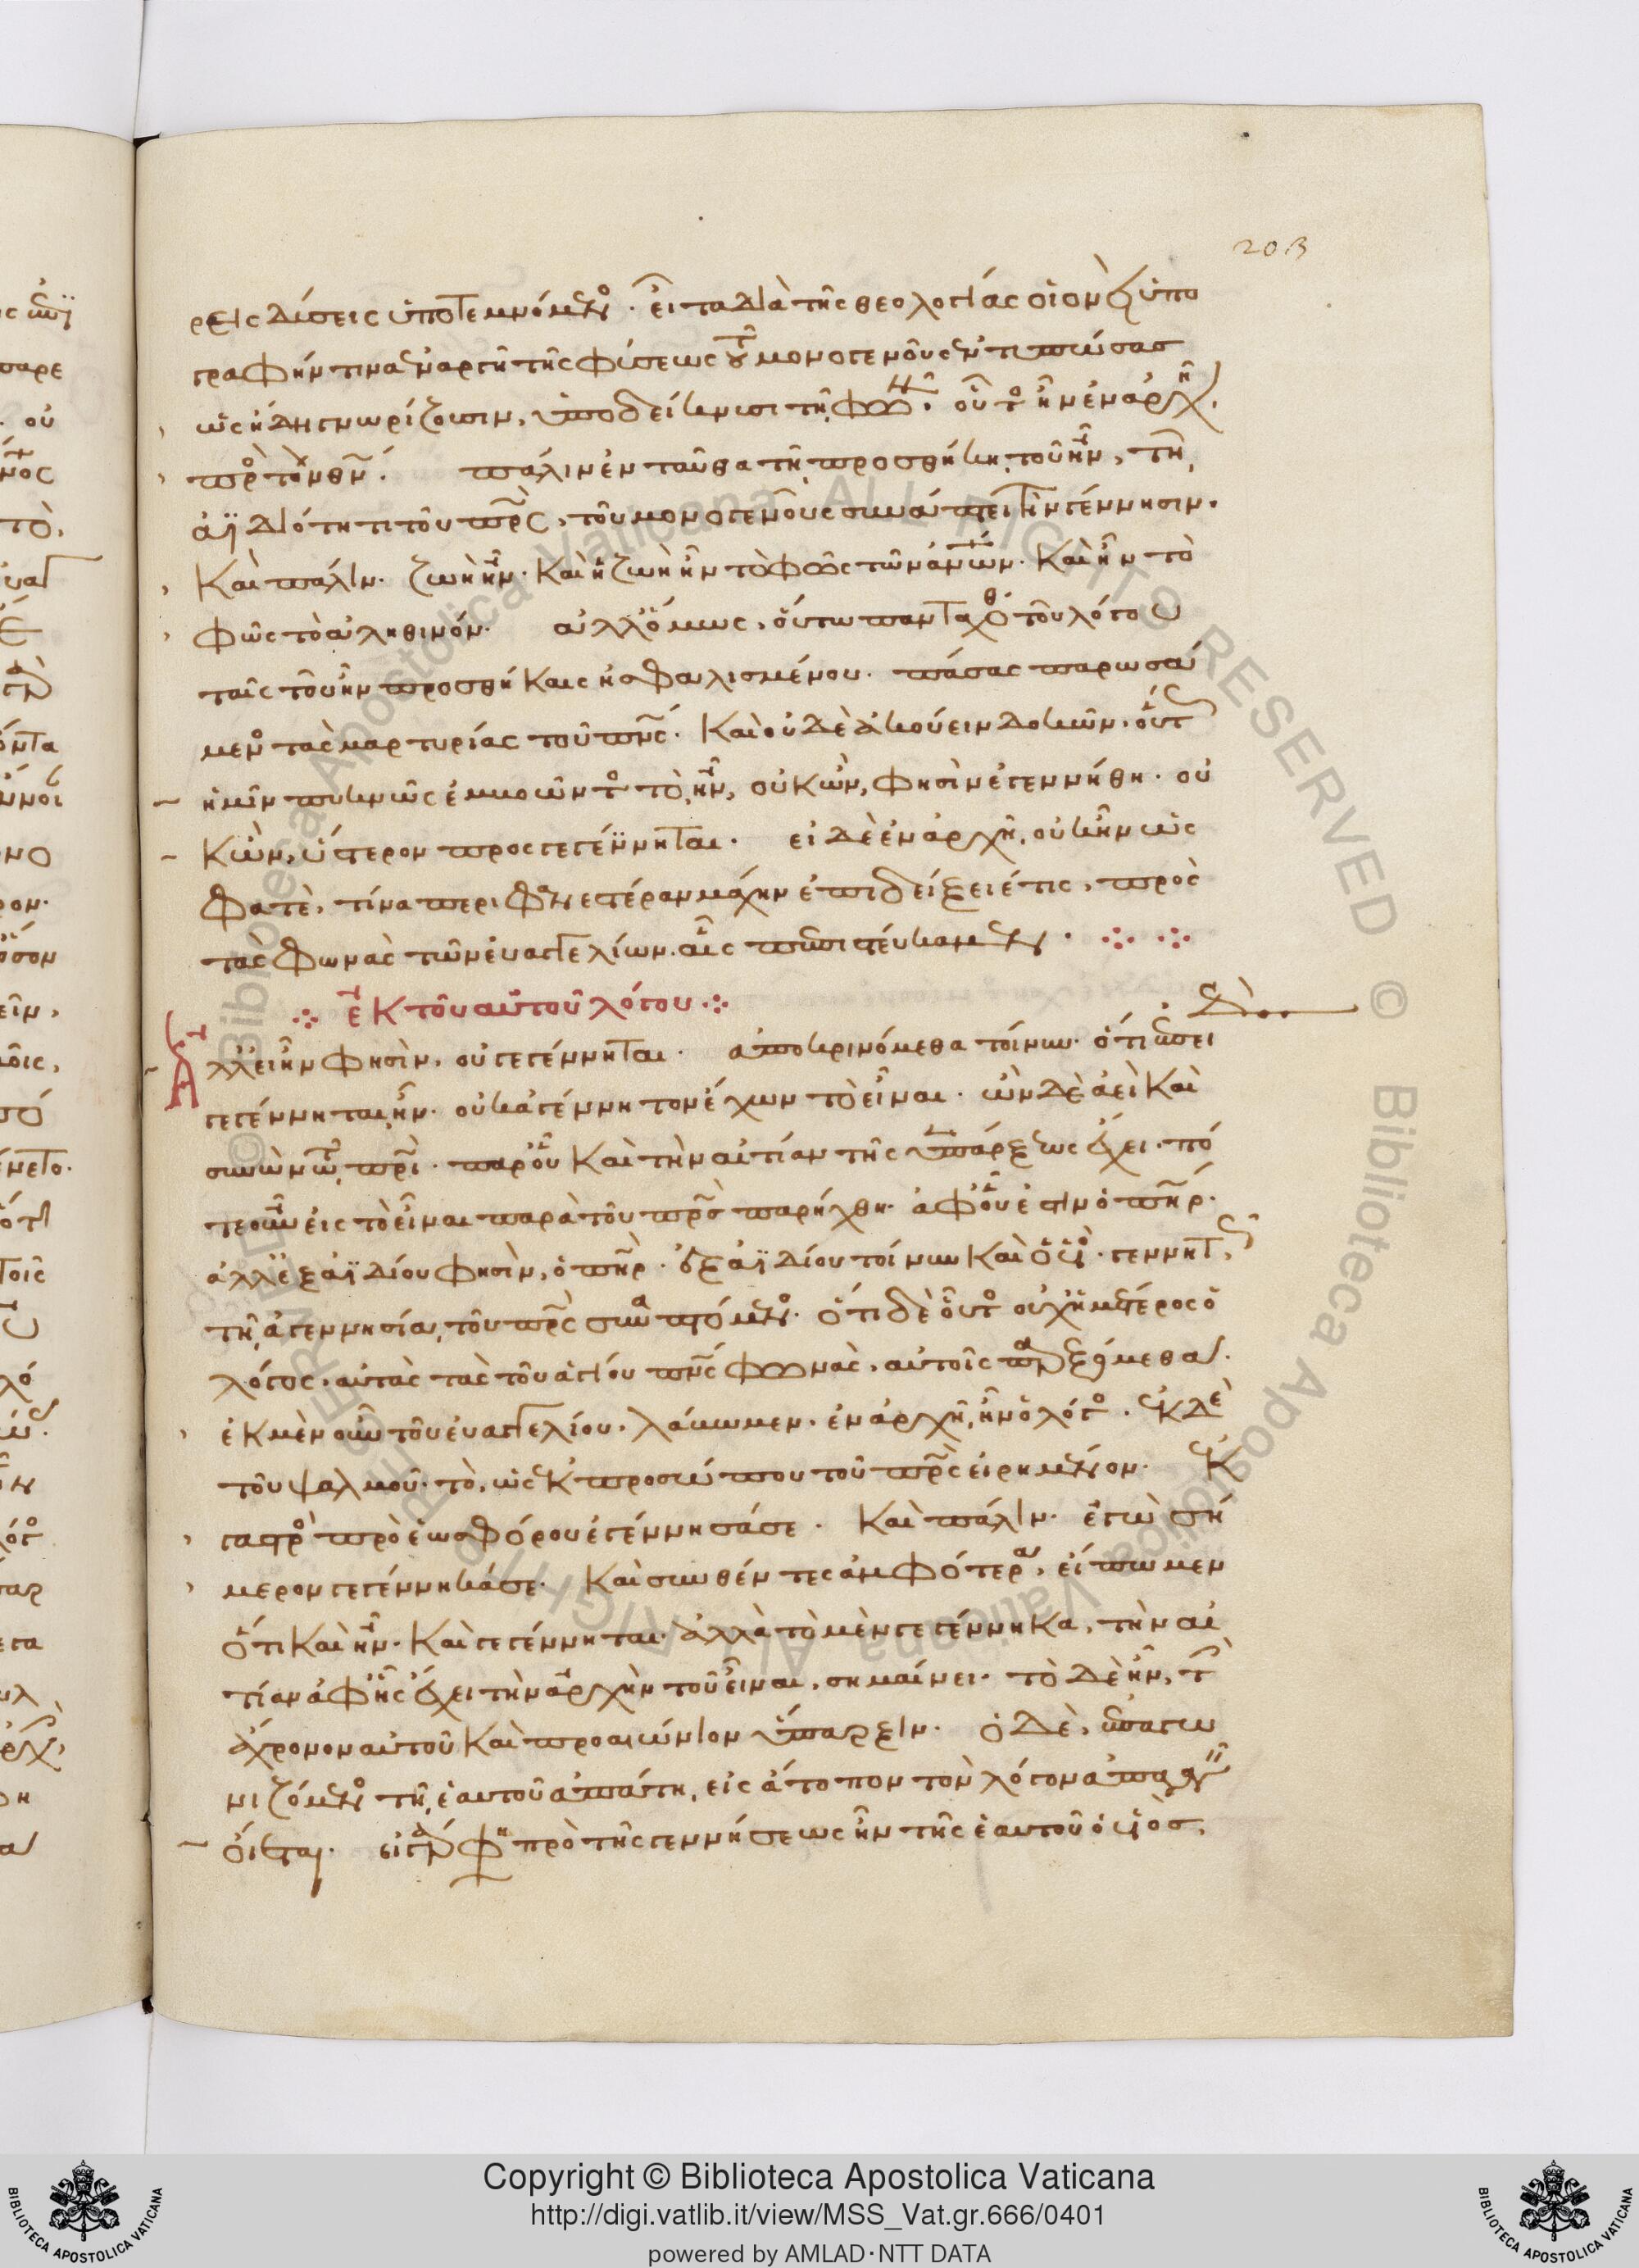 203
ρεισδύσεις ὑποτεμνόμενος. εἶτα διὰ τῆς θεολογίας οἱονεὶ ὑπο
γραφήν τινα ἐναργῆ τῆς φύσεως τοῦ μονογενοῦς ἐντυπώσας
ὡς ἤδη γνωρίζουσιν, ὑποδείκνυσι τῇ φωνῇ. οὗτος ἦν ἐν ἀρχῇ
πρὸς τὸν θν. πάλιν ἐνταῦθα τῇ προσθήκῃ τοῦ ἦν, τῇ
ἀϊδιότητι τοῦ πρς, τοῦ μονογενοῦς συνάπτει τὴν γέννησιν.
Καὶ πάλιν. ζωὴ ἦν. Καὶ ἡ ζωὴ ἦν τὸ φῶς τῶν ἀνων. Καὶ ἦν τὸ
φῶς τὸ ἀληθινόν. ἀλλ' ὅμως, οὕτω πανταχόθεν τοῦ λόγου
ταῖς τοῦ ἦν προσθήκαις ἠσφαλισμένου. πάσας παρωσά
μενος τὰς μαρτυρίας τοῦ πνς. Καὶ οὐδὲ ἀκούειν δοκῶν. οὗτος
ἡμῖν πυκνῶς ἐμβοῶντος τὸ, ἦν, οὐκ ὢν, φησὶν ἐγεννήθη. οὐ
κ ὢν, ὕστερον προσγεγέννηται. εἰ δὲ ἐν ἀρχῇ, οὐκ ἦν ὡς
φατὲ, τίνα περιφανεστέραν μάχην ἐπιδείξειέ τις, πρὸς
τὰς φωνὰς τῶν εὐαγγελίων. αἷς πεπιστεύκαμεν.
ἐκ τοῦ αὐτοῦ λόγου
Ἀλλ' εἰ ἦν φησὶν, οὐ γεγέννηται. ἀποκρινόμεθα τοίνυν. ὅτι ἐπεὶ
γεγέννηται, ἦν. οὐκ ἀγέννητον ἔχων τὸ εἶναι. ὢν δὲ ἀεὶ καὶ
συνὼν τῷ πρι. παρ' οὗ καὶ τὴν αἰτίαν τῆς ὑπάρξεως ἔχει. πό
τε οὖν εἰς τὸ εἶναι παρὰ τοῦ πρς παρήχθη. ἀφ' οὗ ἐστιν ὁ πηρ.
ἀλλ' ἐξ ἀϊδίου φησὶν, ὁ πηρ. ἐξ ἀϊδίου τοίνυν καὶ ὁ υἱός. γεννητῶς
τῇ ἀγεννησίᾳ τοῦ πρς συναπτόμενος. ὅτι δὲ οὗτος οὐχ ἡμέτερος ὁ
λόγος. αὐτὰς τὰς τοῦ ἁγίου πνς φωνὰς, αὐτοῖς παρεξόμεθα.
ἐκ μὲν οὖν τοῦ εὐαγγελίου. λάβωμεν. ἐν ἀρχῇ, ἦν ὁ λόγος. ἐκ δὲ
τοῦ ψαλμοῦ. τὸ, ὡς ἐκ προσώπου τοῦ πρς εἰρημένον. ἐκ
γαστρὸς πρὸ ἑωσφόρου ἐγέννησά σε. Καὶ πάλιν. ἐγὼ σή
μερον γεγέννηκά σε. Καὶ συνθέντες ἀμφότερα, εἴπωμεν
ὅτι καὶ ἦν. Καὶ γεγέννηται. ἀλλὰ τὸ μὲν γεγέννηκα, τὴν αἰ
τίαν ἀφ' ἧς ἔχει τὴν ἀρχὴν τοῦ εἶναι, σημαίνει. τὸ δὲ ἦν, τὴν
ἄχρονον αὐτοῦ καὶ προαιώνιον ὕπαρξιν. ὁ δὲ, ἐπαγω
νιζόμενος τῇ ἑαυτοῦ ἀπάτῃ, εἰς ἄτοπον τὸν λόγον ἀπαγαγεῖν
οἴεται. εἰ γὰρ φη πρὸ τῆς γεννήσεως ἦν τῆς ἑαυτοῦ ὁ υἱὸς,
Copyright © Biblioteca Apostolica Vaticana
http://digi.vatlib.it/view/MSS_Vat.gr.666/0401
powered by AMLAD·NTT DATA
BIBLIOTECA APOSTOLICA VATICANA
BIBLIOTECA APOSTOLICA VATICANA